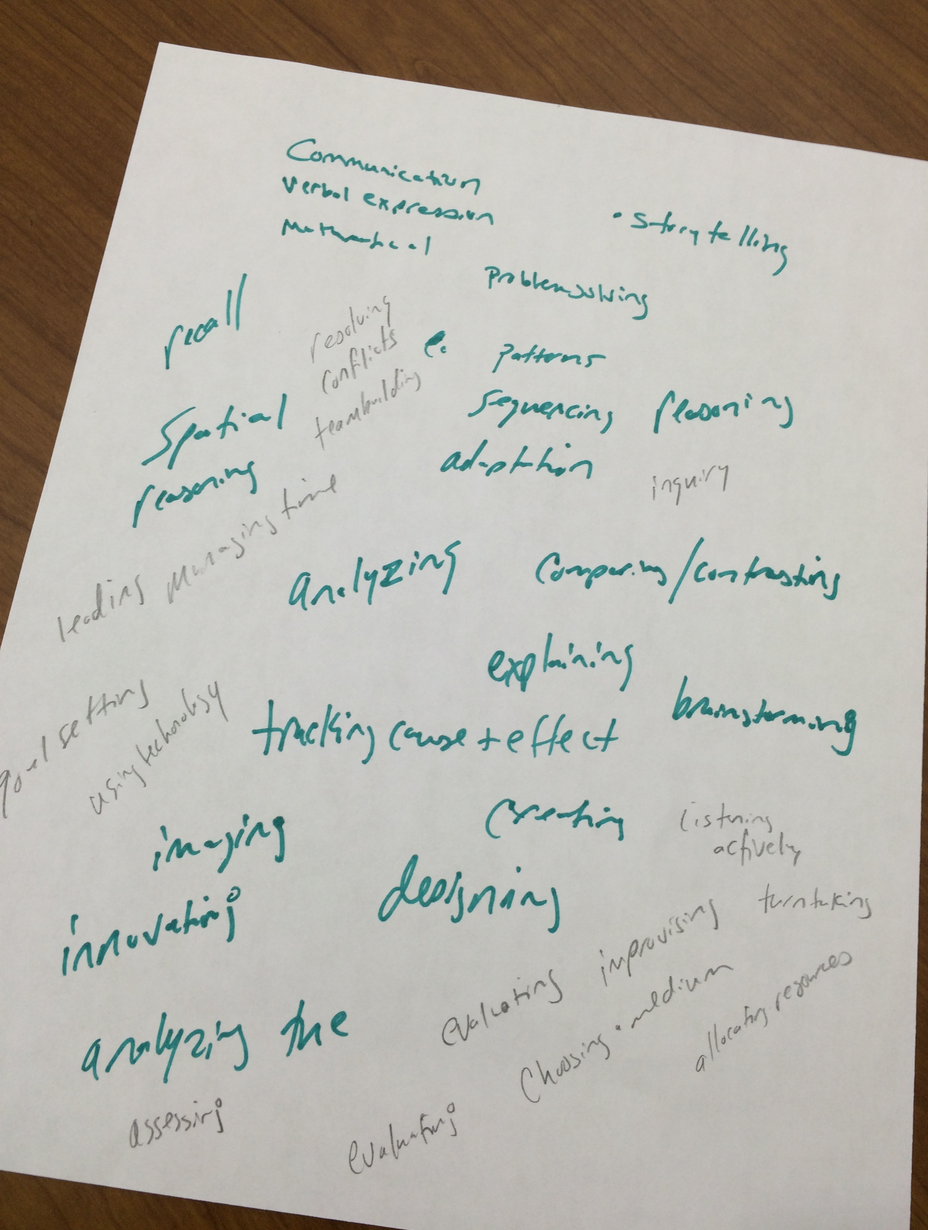 Communication
verbal expression
Mathematical
• storytelling
Problem solving
recall
resolving
conflicts
teambuilding
e.
patterns
Sequencing
reasoning
Spatial
reasoning
adaptation
inquiry
leading
managing time
analyzing
Comparing/contrasting
explaining
goal setting
using technology
tracking cause + effect
brainstorming
imaging
creating
listening
actively
innovating
designing
evaluating
improvising
turntaking
analyzing the
choosing a medium
allocating resources
assessing
evaluating